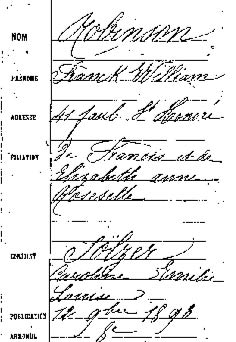 NOM Robinson
PRÉNOMS Franck William
ADRESSE 41 faub. St Honoré
FILIATION De Francis et de
Elizabeth anne
CONJOINT Sölzer
Caroline Emilie
Louise
PUBLICATION 12 9bre 1893
ARRONDt 8e